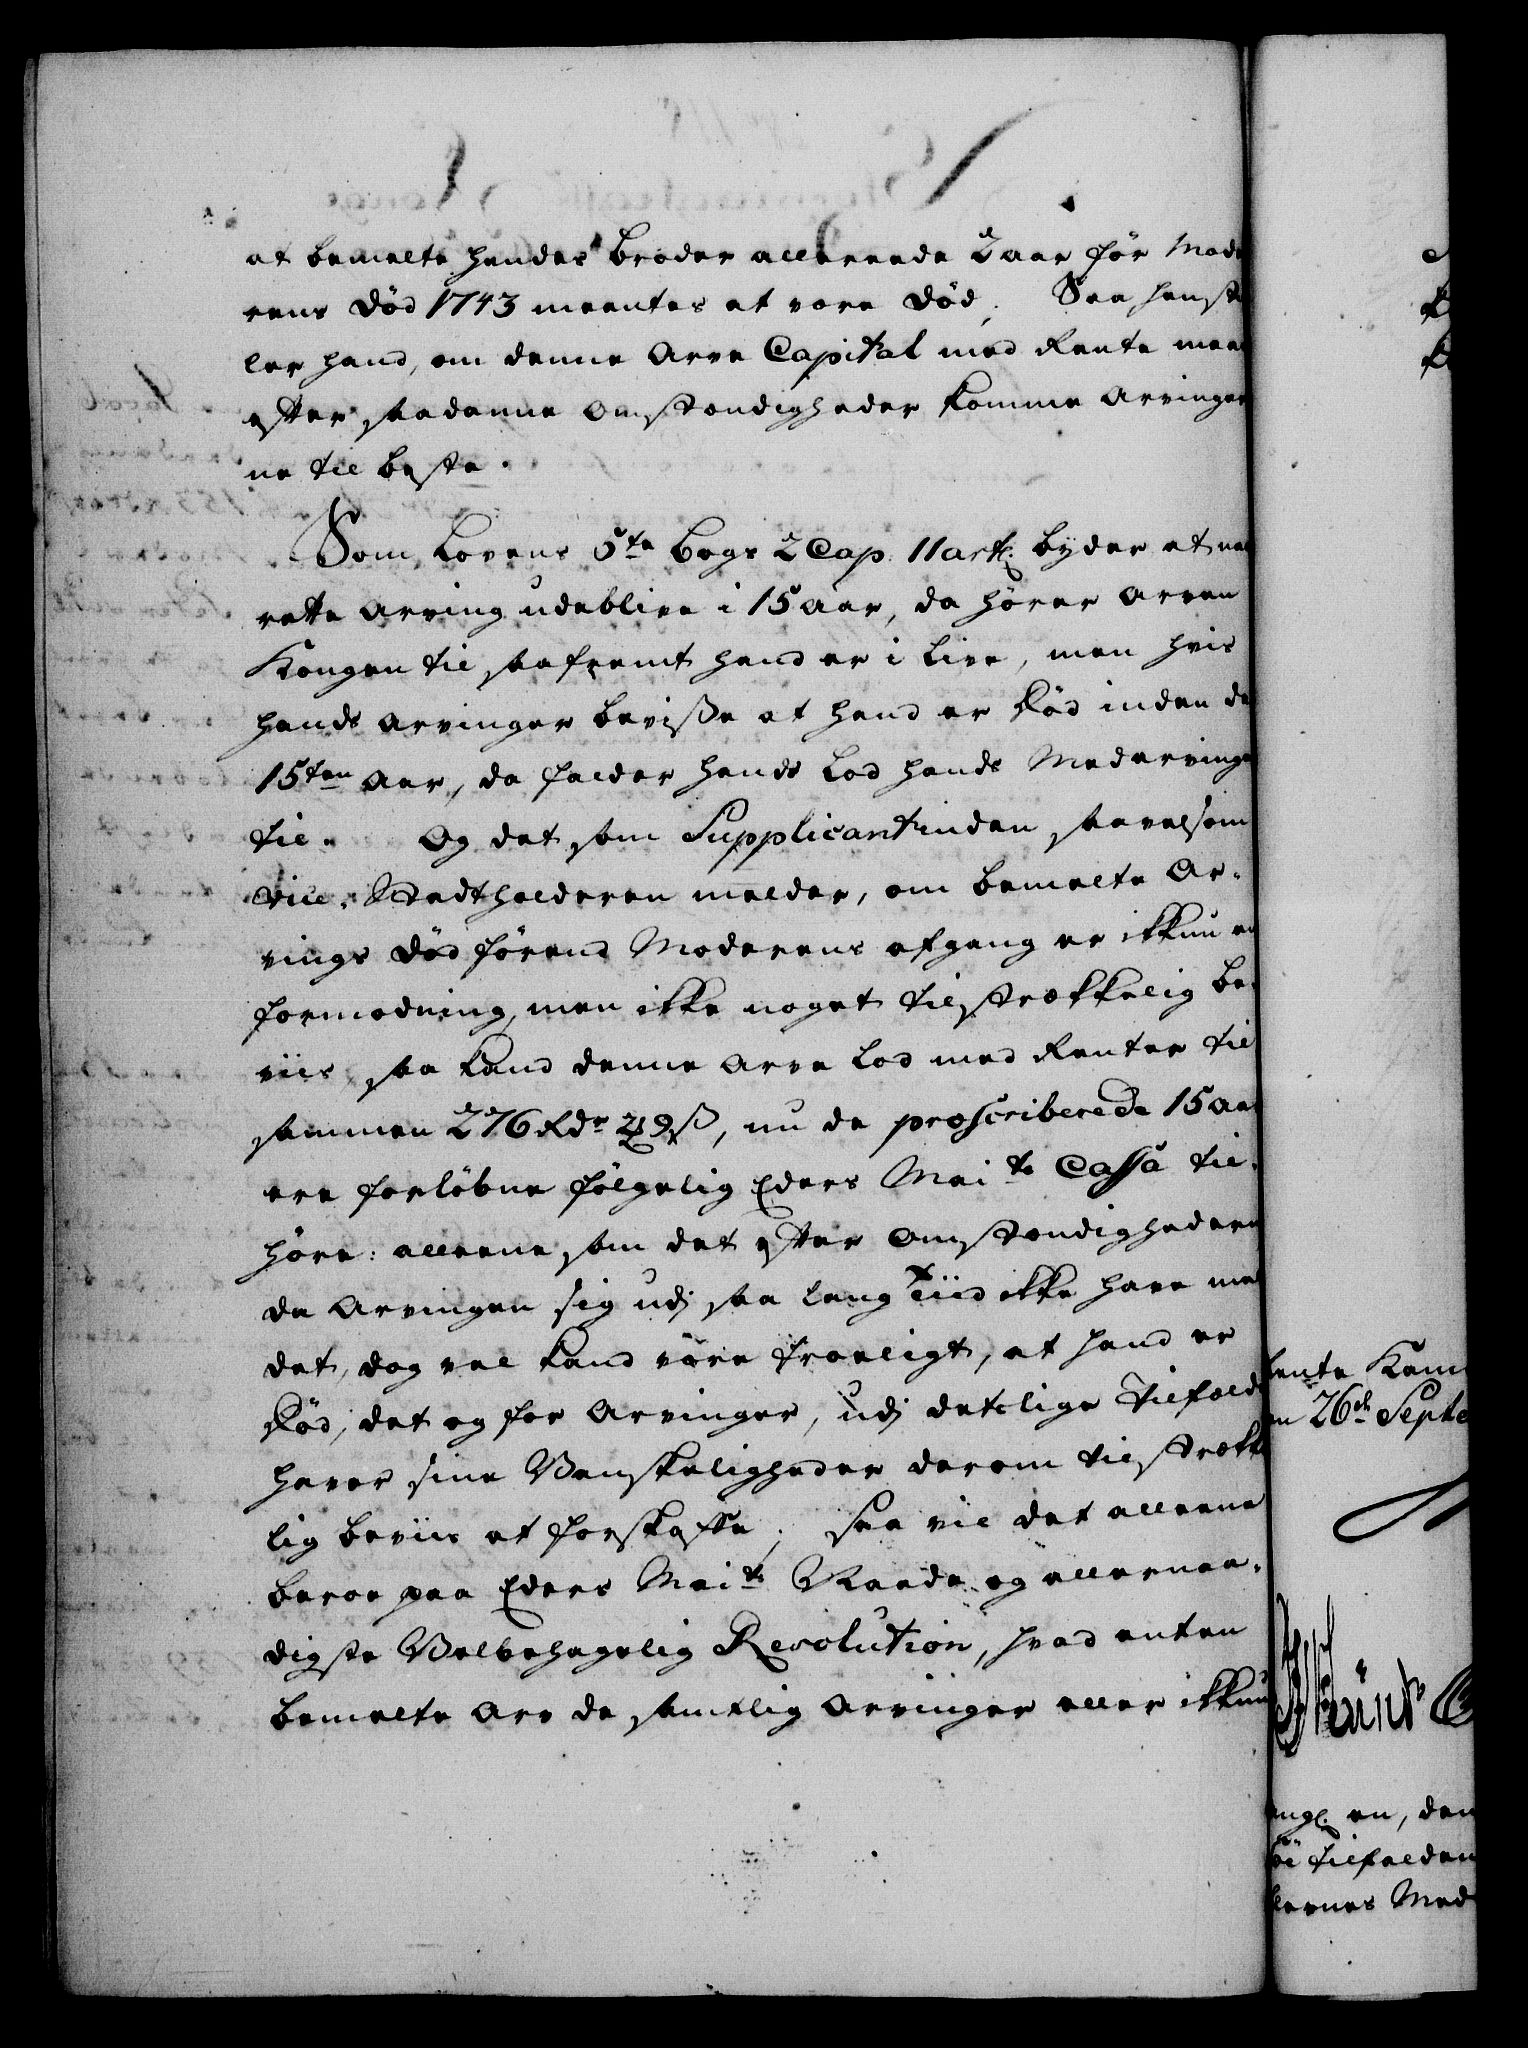 at bemelte hendes broder allereede 2 aar för Mode
rens Död 1743 meentes at vere död, Saa henstil
ler hand, om denne Arve Capital med Rente maae
efter saadanne Omstændigheder komme Arvinger
ne til beste.
Som Lovens 5te Bogs 2 Cap. 11 art: byder at naar
rette Arving udeblive i 15 aar, da hörer Arven
Kongen til saafremt hand er i Live, men hvis
hands Arvinger beviße at hand er död inden de
15ten Aar, da falder hands Lod hands Medarvinge
til. Og det som Supplicantinden saavelsom
Vice-Stadtholderen melder, om bemelte Ar-
vings död förend Moderens afgang er ikkun en
formodning, men ikke noget tilstrækkelig be-
viis, saa kand denne Arve Lod med Renter til
sammen 276 Rdr 2 9 ß, nu de præscriberede 15 aar
ere forlöbne fölgelig Eders Maits Cassa til-
höre: alleene som det efter Omstændighederne
da Arvingen sig udj saa lang Tiid ikke have mel
det, dog vel kand være troeligt, at hand er
död, det og for Arvinger, udj deslige Tilfælde
haver sine Vanskeligheder derom tilstrække
lig beviis at forskaffe, saa vil det alleene
beroe paa Eders Maits Naade og allernaa-
digste Velbehagelig Resolution, hvad enten
bemelte Arv de samtlig Arvinger eller ikkun
Rente Kam
en 26de Septe
en, den
Tilfælden
Med